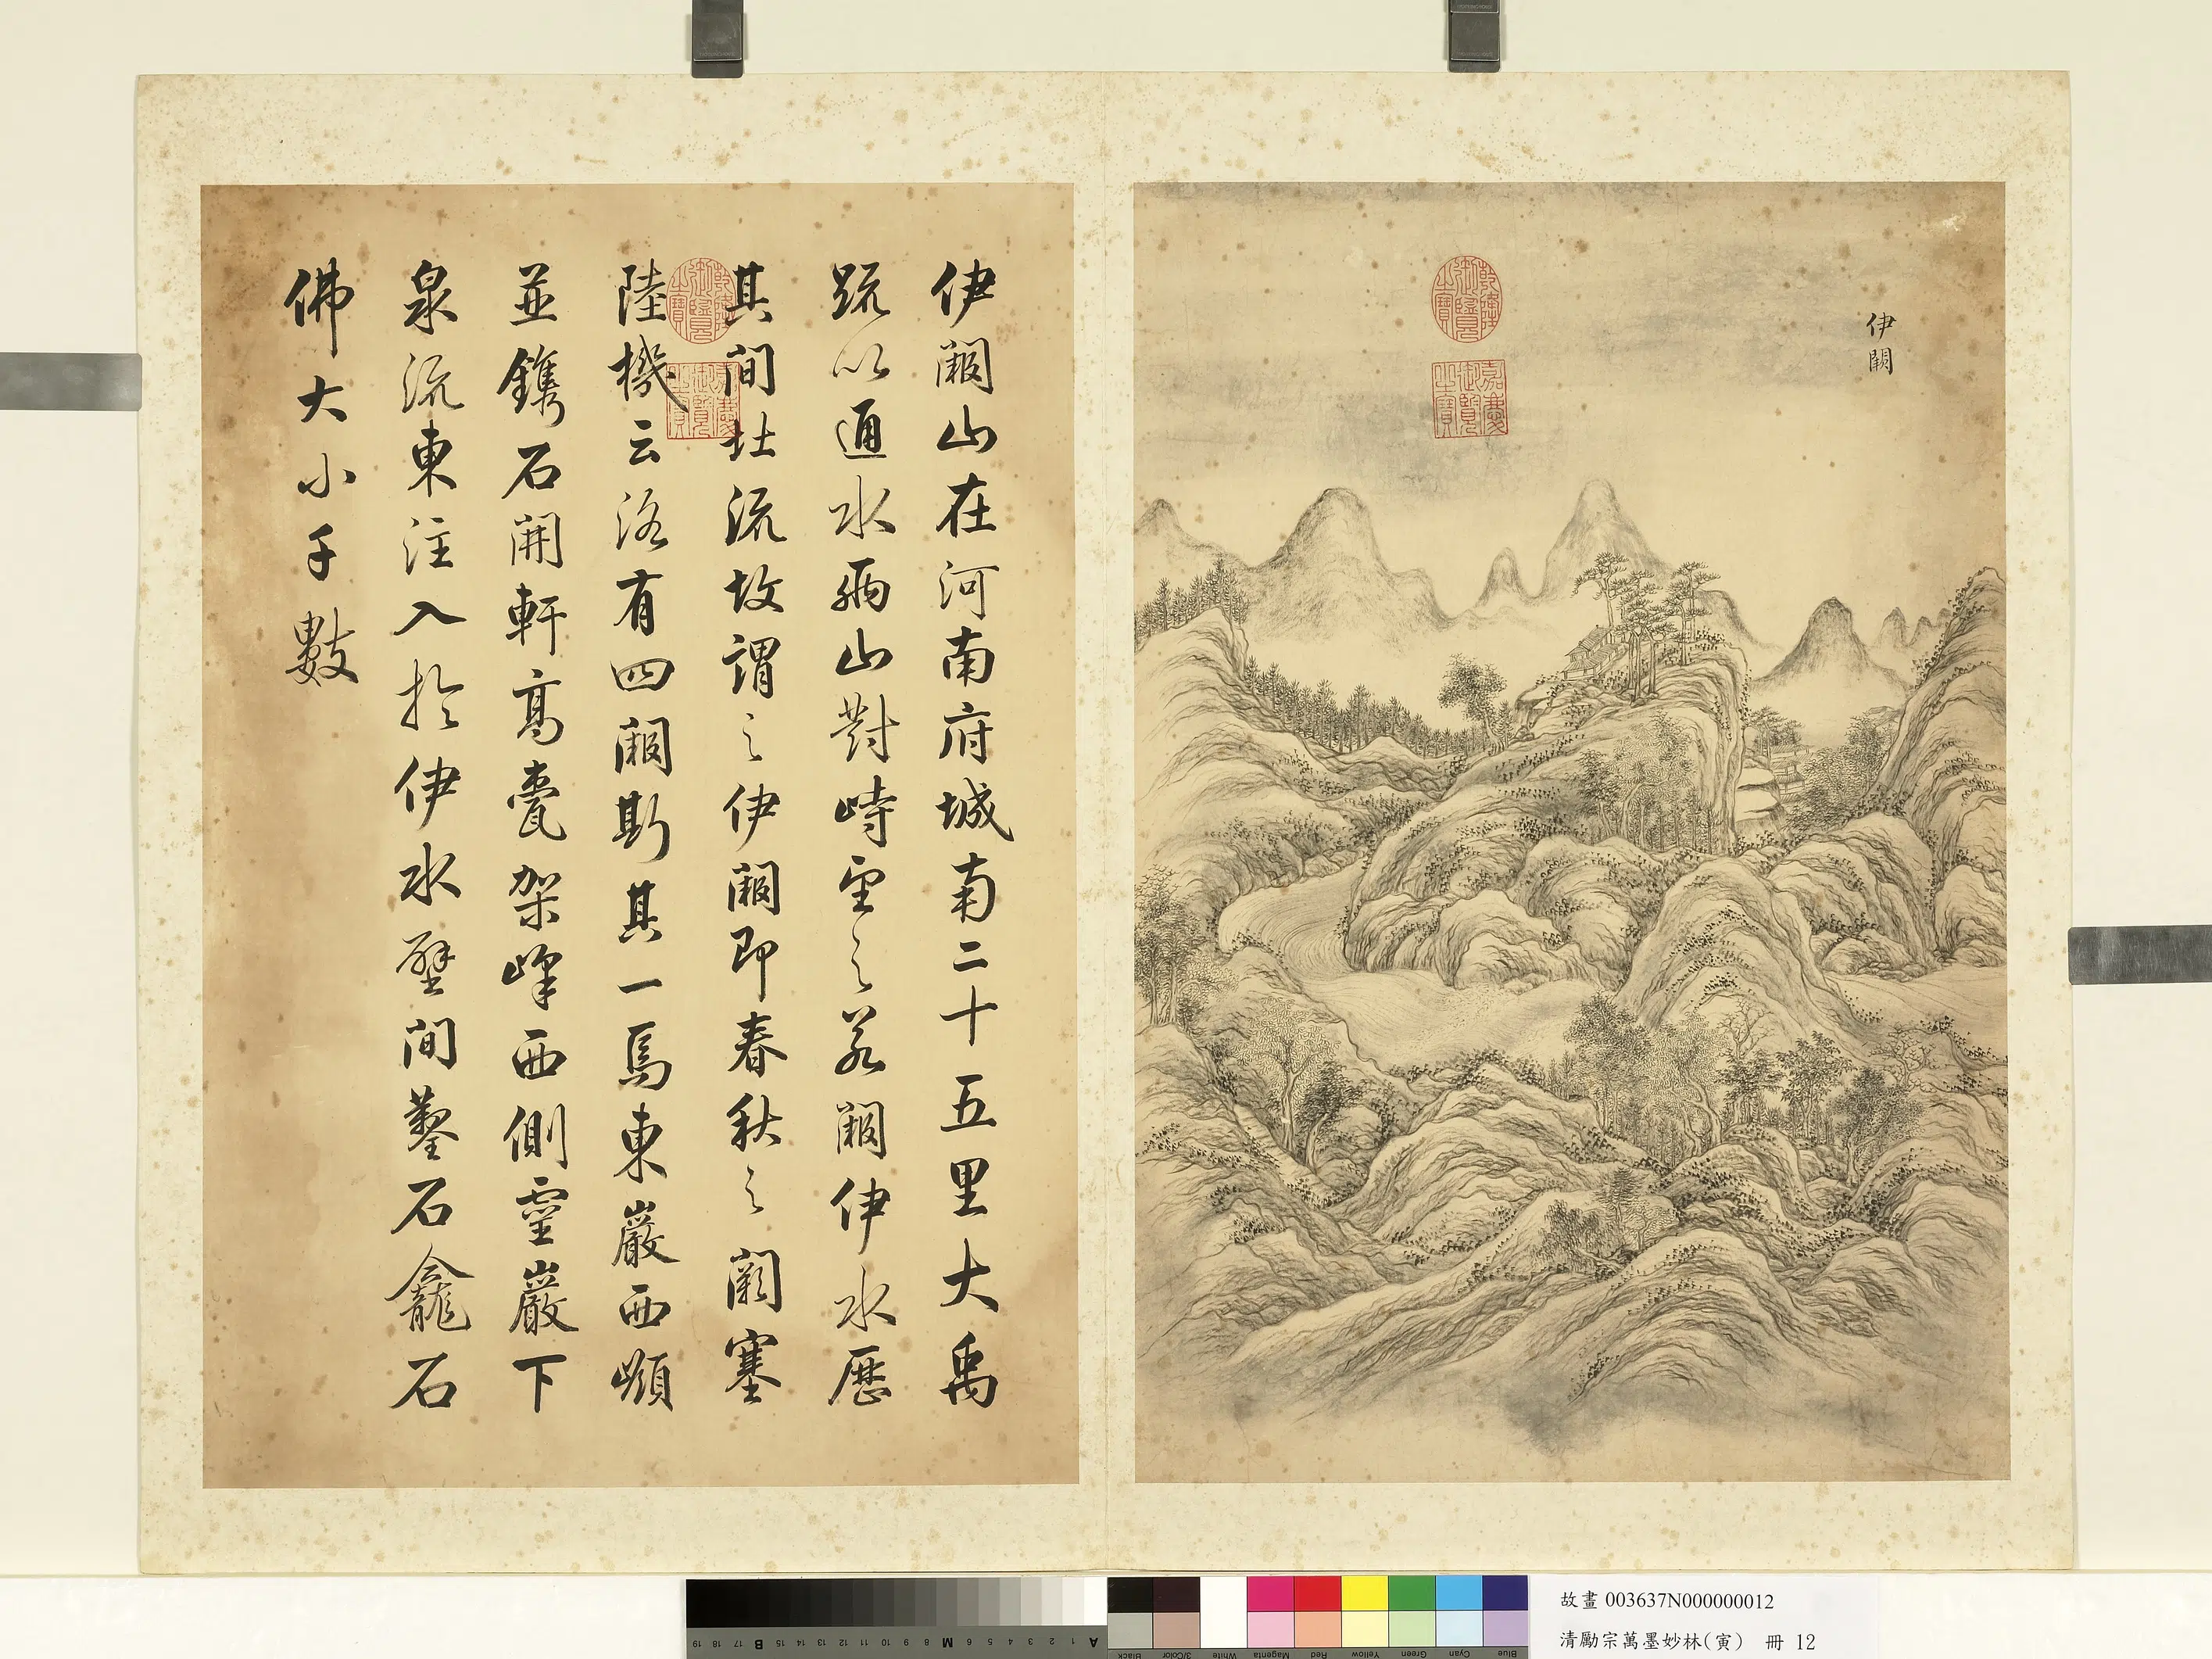 伊闕
乾隆御覽之寶
嘉慶御覽之寶
伊闕山在河南府城南二十五里大禹
疏以通水兩山對峙望之若闕伊水歷
其間北流故謂之伊闕即春秋之闕塞
陸機云洛有四闕斯其一焉東巖西嶺
並鐫石開軒高甍架峰西側靈巖下
泉流東注入於伊水壁間鑿石龕石
佛大小千數
乾隆御覽之寶
嘉慶御覽之寶
A 1 2 3 4 5 6 7 8 9 M 10 11 12 13 14 15 B 17 18 19
Blue Cyan Green Yellow Red Magenta White 3/Color Black
故畫 003637N000000012
清勵宗萬墨妙林(寅) 冊 12